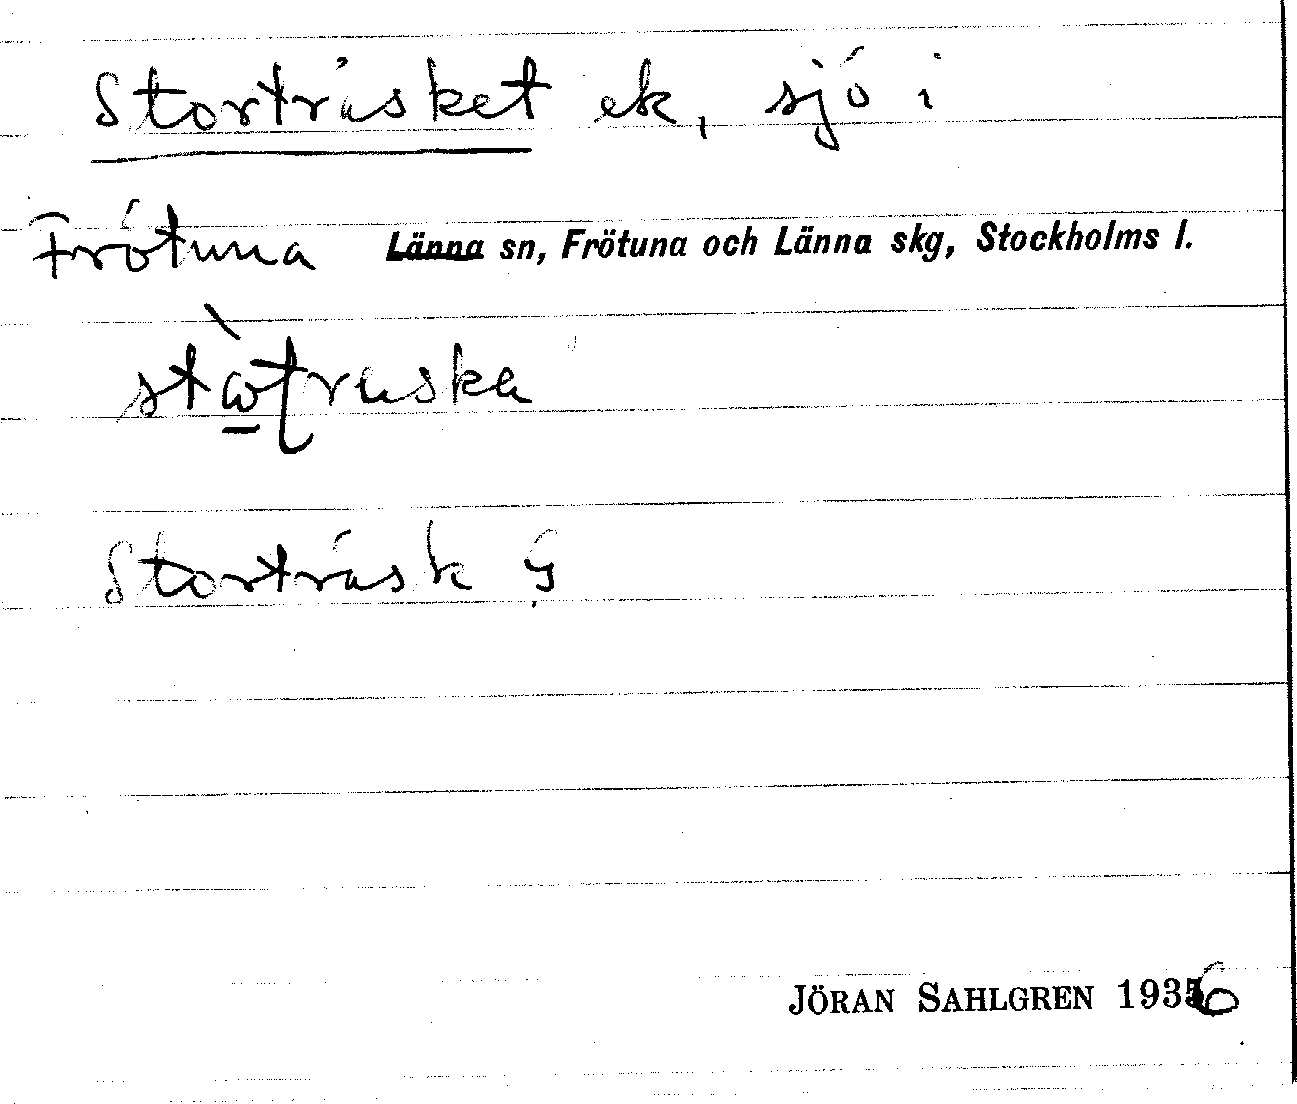 Storträsket ek, sjö i
Frötuna Länna sn, Frötuna och Länna skg, Stockholms l.
Storträsk G
JÖRAN SAHLGREN 1936